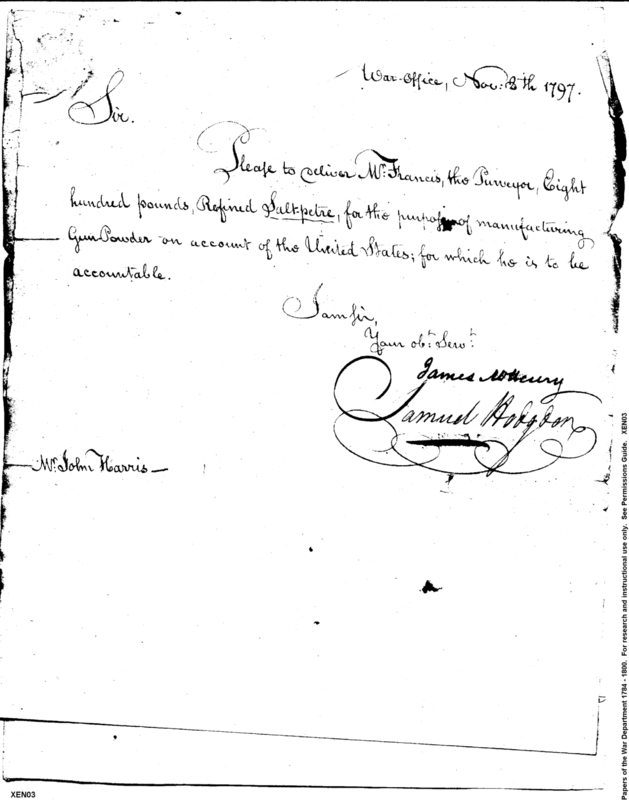 War-Office, Nov: 8th 1797.
Sir.
Please to deliver Mr. Francis, the Purveyor, Eight
hundred pounds, Refined Salt-petre, for the purpose of manufacturing
Gun Powder on account of the United States; for which he is to be
accountable.
I am Sir,
Your obt. Servt.
James McHenry
Samuel Hodgdon
Mr. John Harris
Papers of the War Department 1784 - 1800. For research and instructional use only. See Permissions Guide. XEN03
XEN03